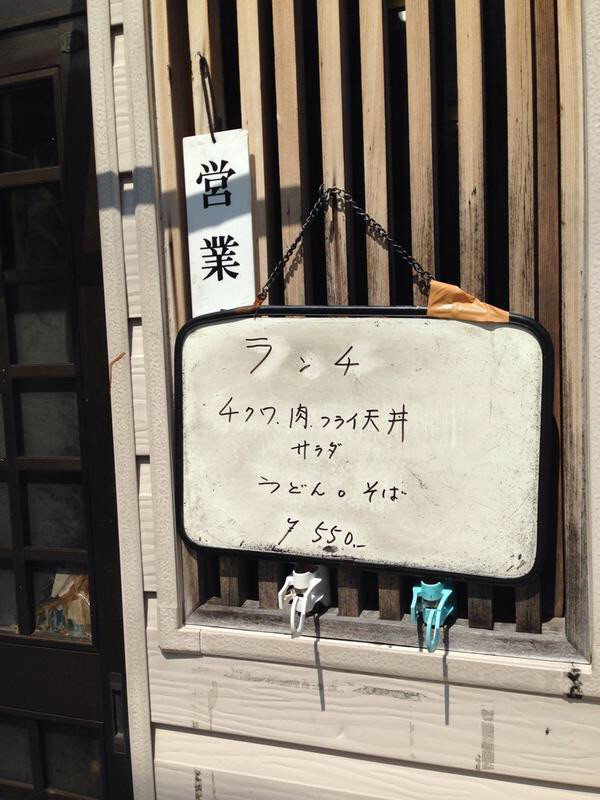 営業
ランチ
チクワ.肉.フライ天丼
サラダ
うどん。そば
¥550.-